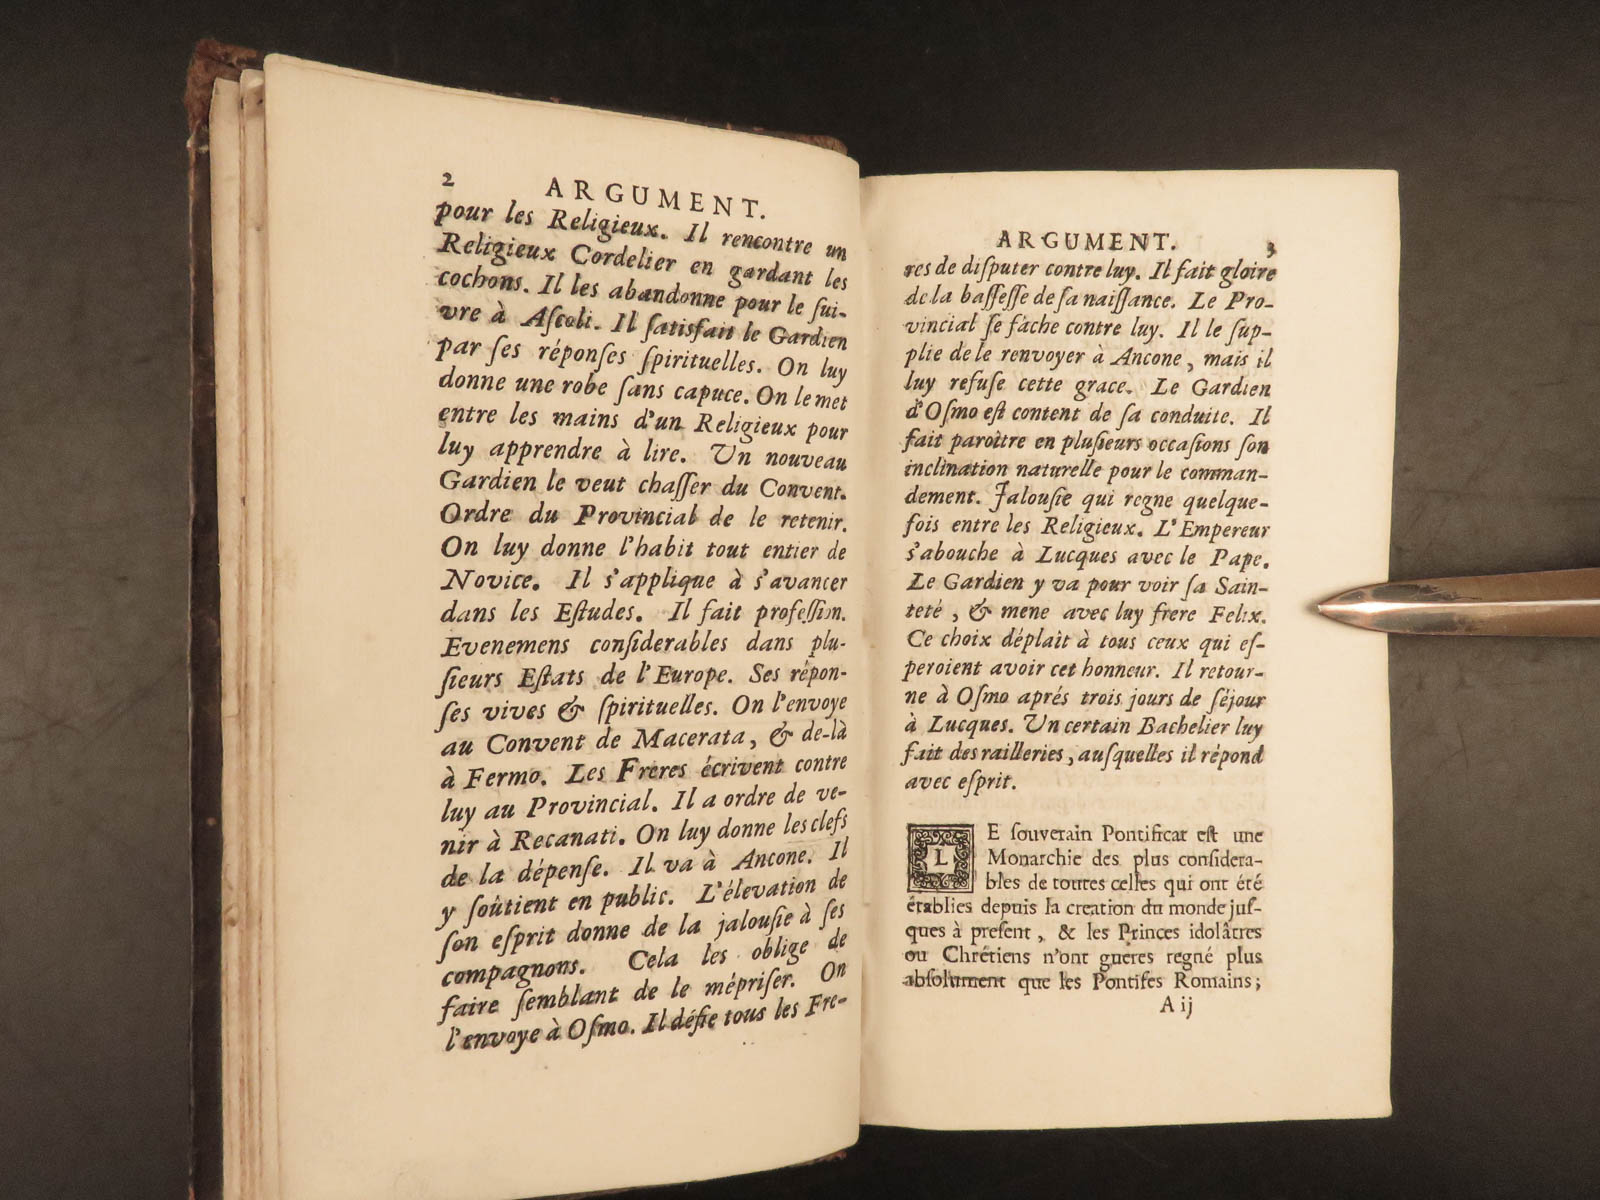 2 ARGUMENT.
pour les Religieux. Il rencontre un
Religieux Cordelier en gardant les
cochons. Il les abandonne pour le ſui-
vre à Aſcoli. Il ſatisfait le Gardien
par ſes réponſes ſpirituelles. On luy
donne une robe ſans capuce. On le met
entre les mains d'un Religieux pour
luy apprendre à lire. Un nouveau
Gardien le veut chaſſer du Convent.
Ordre du Provincial de le retenir.
On luy donne l'habit tout entier de
Novice. Il s'applique à s'avancer
dans les Eſtudes. Il fait profeſſion.
Evenemens conſiderables dans plu-
ſieurs Eſtats de l'Europe. Ses répon-
ſes vives & ſpirituelles. On l'envoye
au Convent de Macerata, & de-là
à Fermo. Les Freres écrivent contre
luy au Provincial. Il a ordre de ve-
nir à Recanati. On luy donne les clefs
de la dépenſe. Il va à Ancone. Il
y ſoûtient en public. L'élevation de
ſon eſprit donne de la jalouſie à ſes
compagnons. Cela les oblige de
faire ſemblant de le mépriſer. On
l'envoye à Oſmo. Il défie tous les Fre-
ARGUMENT. 3
res de diſputer contre luy. Il fait gloire
de la baſſeſſe de ſa naiſſance. Le Pro-
vincial ſe fâche contre luy. Il le ſup-
plie de le renvoyer à Ancone, mais il
luy refuſe cette grace. Le Gardien
d'Oſmo eſt content de ſa conduite. Il
fait paroître en pluſieurs occaſions ſon
inclination naturelle pour le comman-
dement. Jalouſie qui regne quelque-
fois entre les Religieux. L'Empereur
s'abouche à Lucques avec le Pape.
Le Gardien y va pour voir ſa Sain-
teté, & mene avec luy frere Felix.
Ce choix déplaît à tous ceux qui eſ-
peroient avoir cet honneur. Il retour-
ne à Oſmo aprés trois jours de ſéjour
à Lucques. Un certain Bachelier luy
fait des railleries, auſquelles il répond
avec eſprit.
LE ſouverain Pontificat eſt une
Monarchie des plus conſidera-
bles de toutes celles qui ont été
établies depuis la creation du monde juſ-
ques à preſent, & les Princes idolâtres
ou Chrétiens n'ont gueres regné plus
abſolument que les Pontifes Romains;
A ij